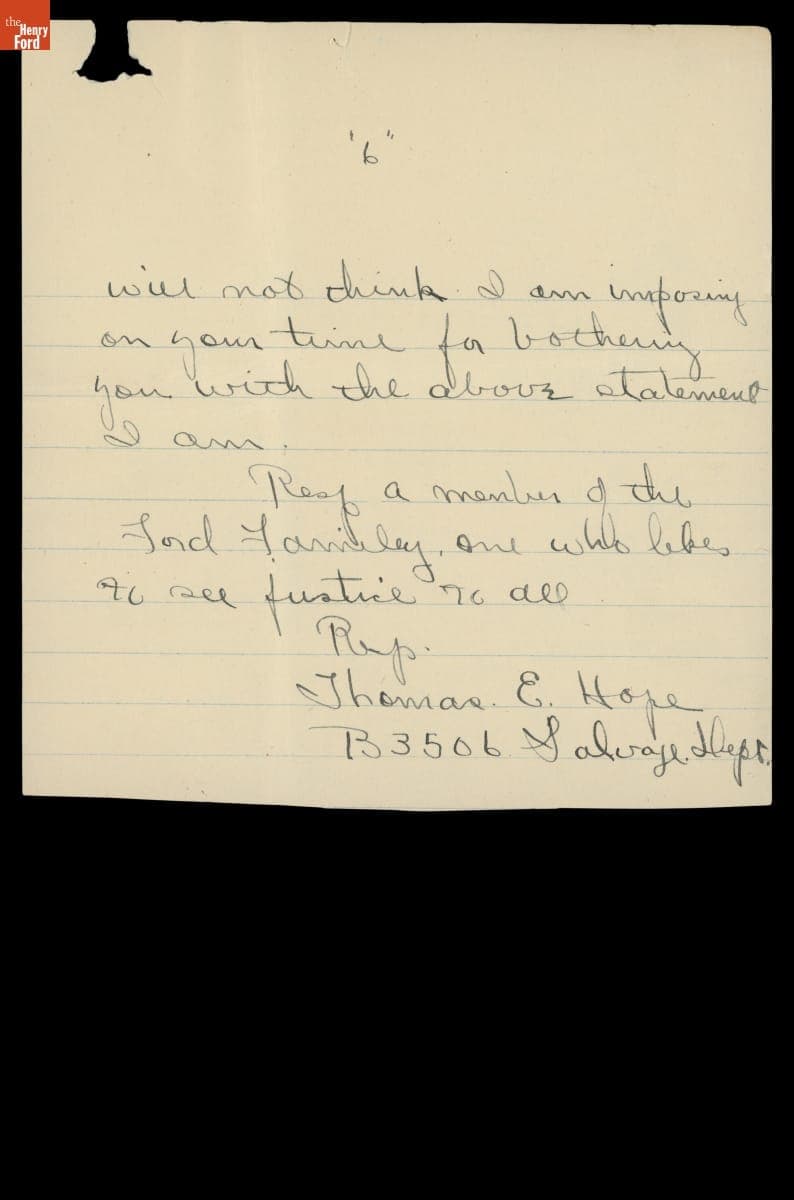 the
Henry
Ford
"6"
will not think I am imposing
on your time for bothering
you with the above statement
I am.
Resp a member of the
Ford Familey, one who likes
to see justice to all
Resp.
Thomas. E. Hope
B3506 Salvage. Dept.